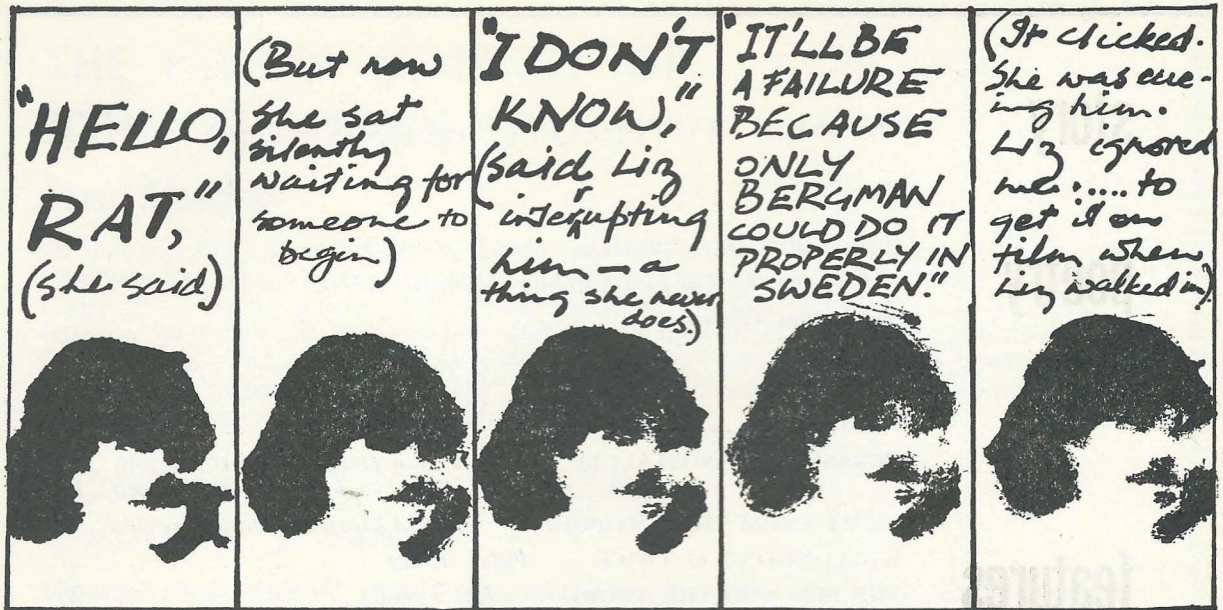 "HELLO,
RAT,"
(she said)
(But now
she sat
silently
waiting for
someone to
begin)
"I DON'T
KNOW,"
(said Liz
interupting
him — a
thing she never
does.)
"IT'LL BE
A FAILURE
BECAUSE
ONLY
BERGMAN
COULD DO IT
PROPERLY IN
SWEDEN."
(It clicked.
She was cue-
ing him.
Liz ignored
me:.....to
get it on
film when
Liz walked in).
poetry
features